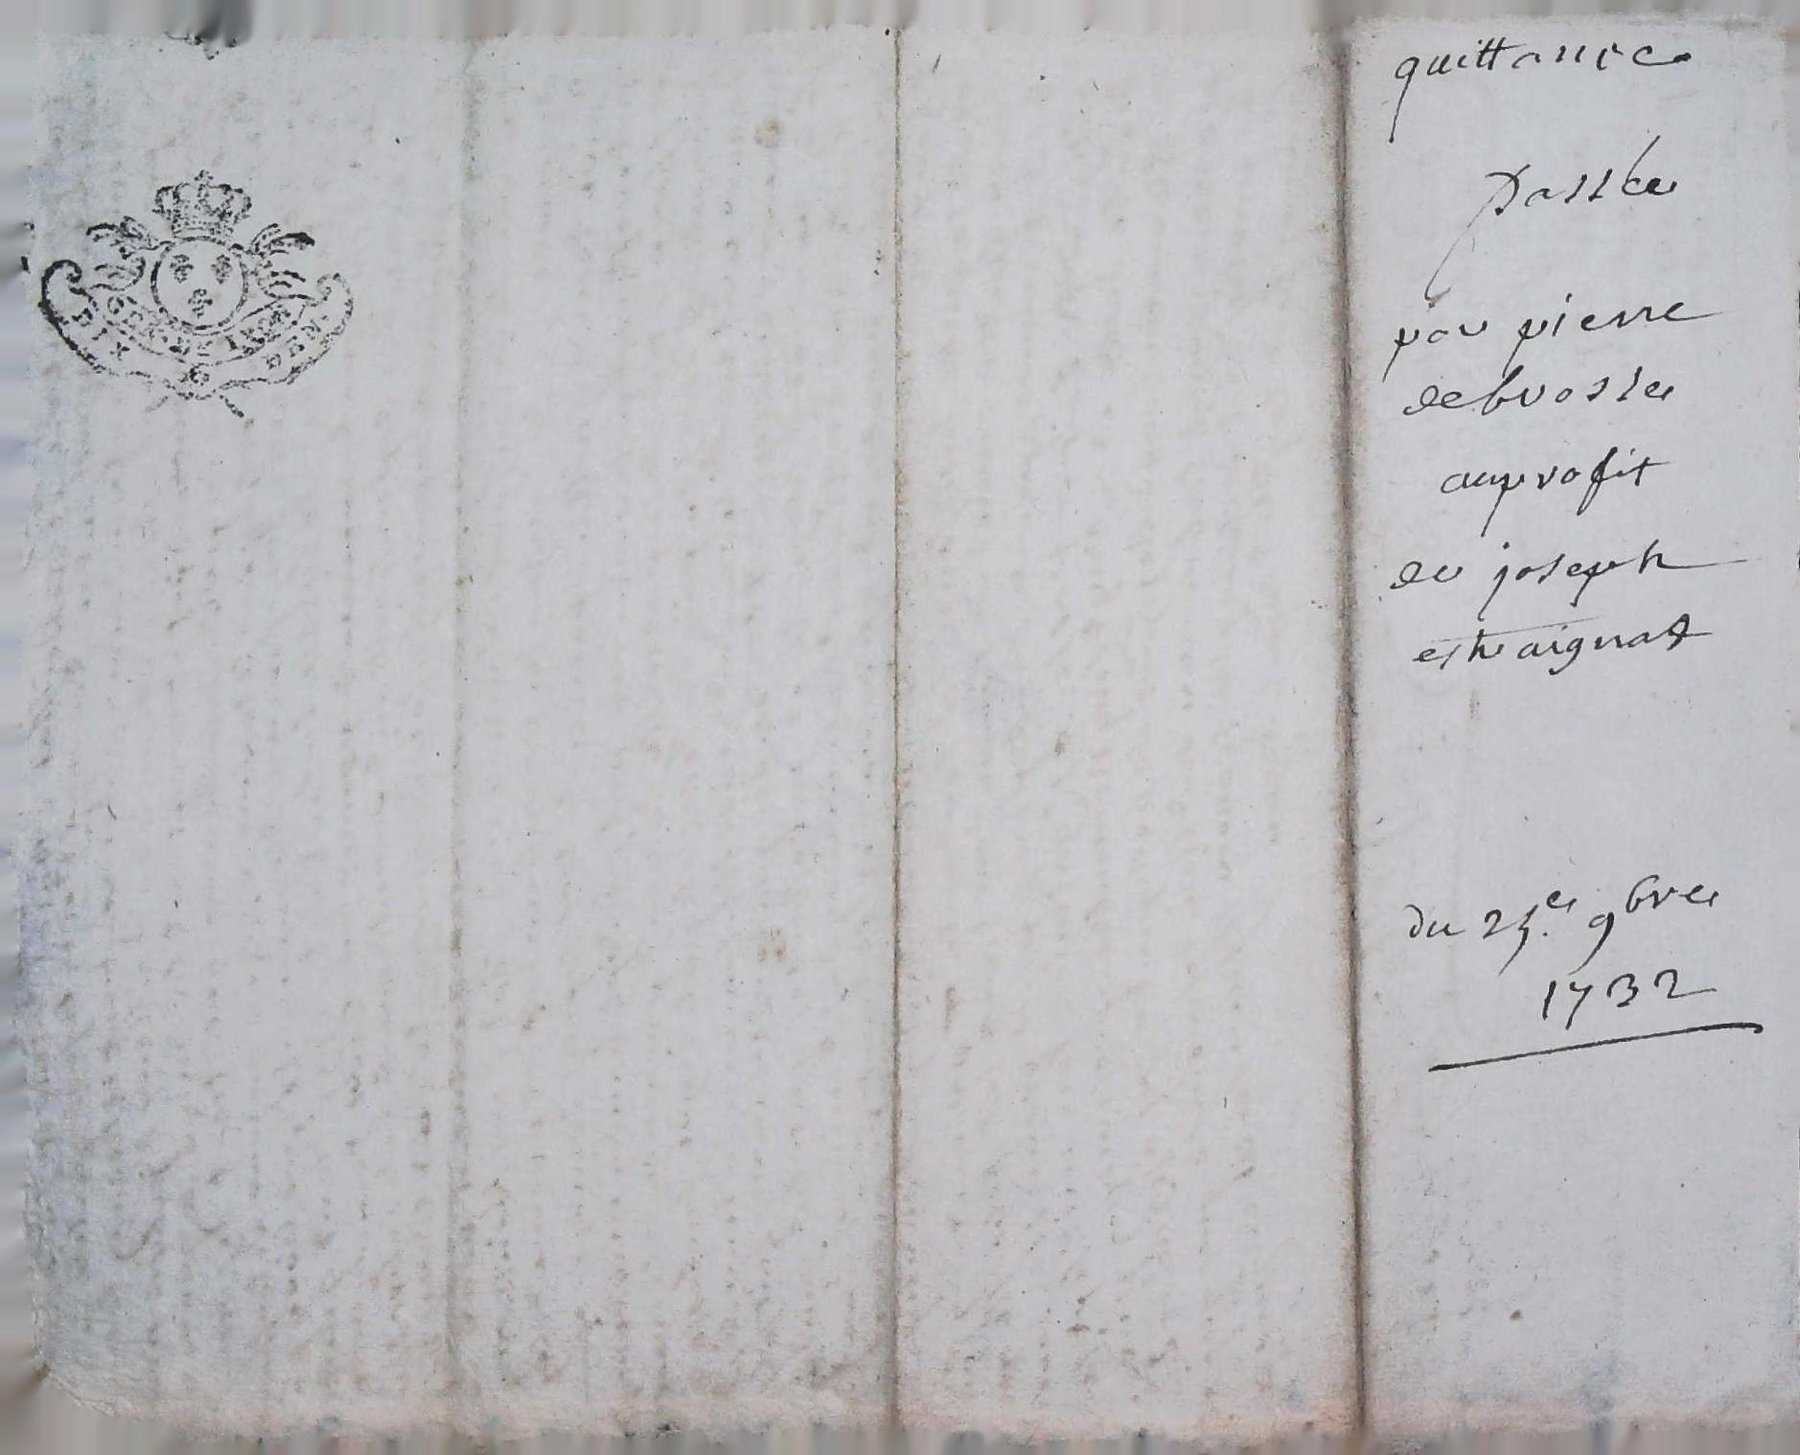 quittance
passée
par pierre
debrosse
auprofit
de joseph
estraignat
du 25.e 9bre
1732
DIX